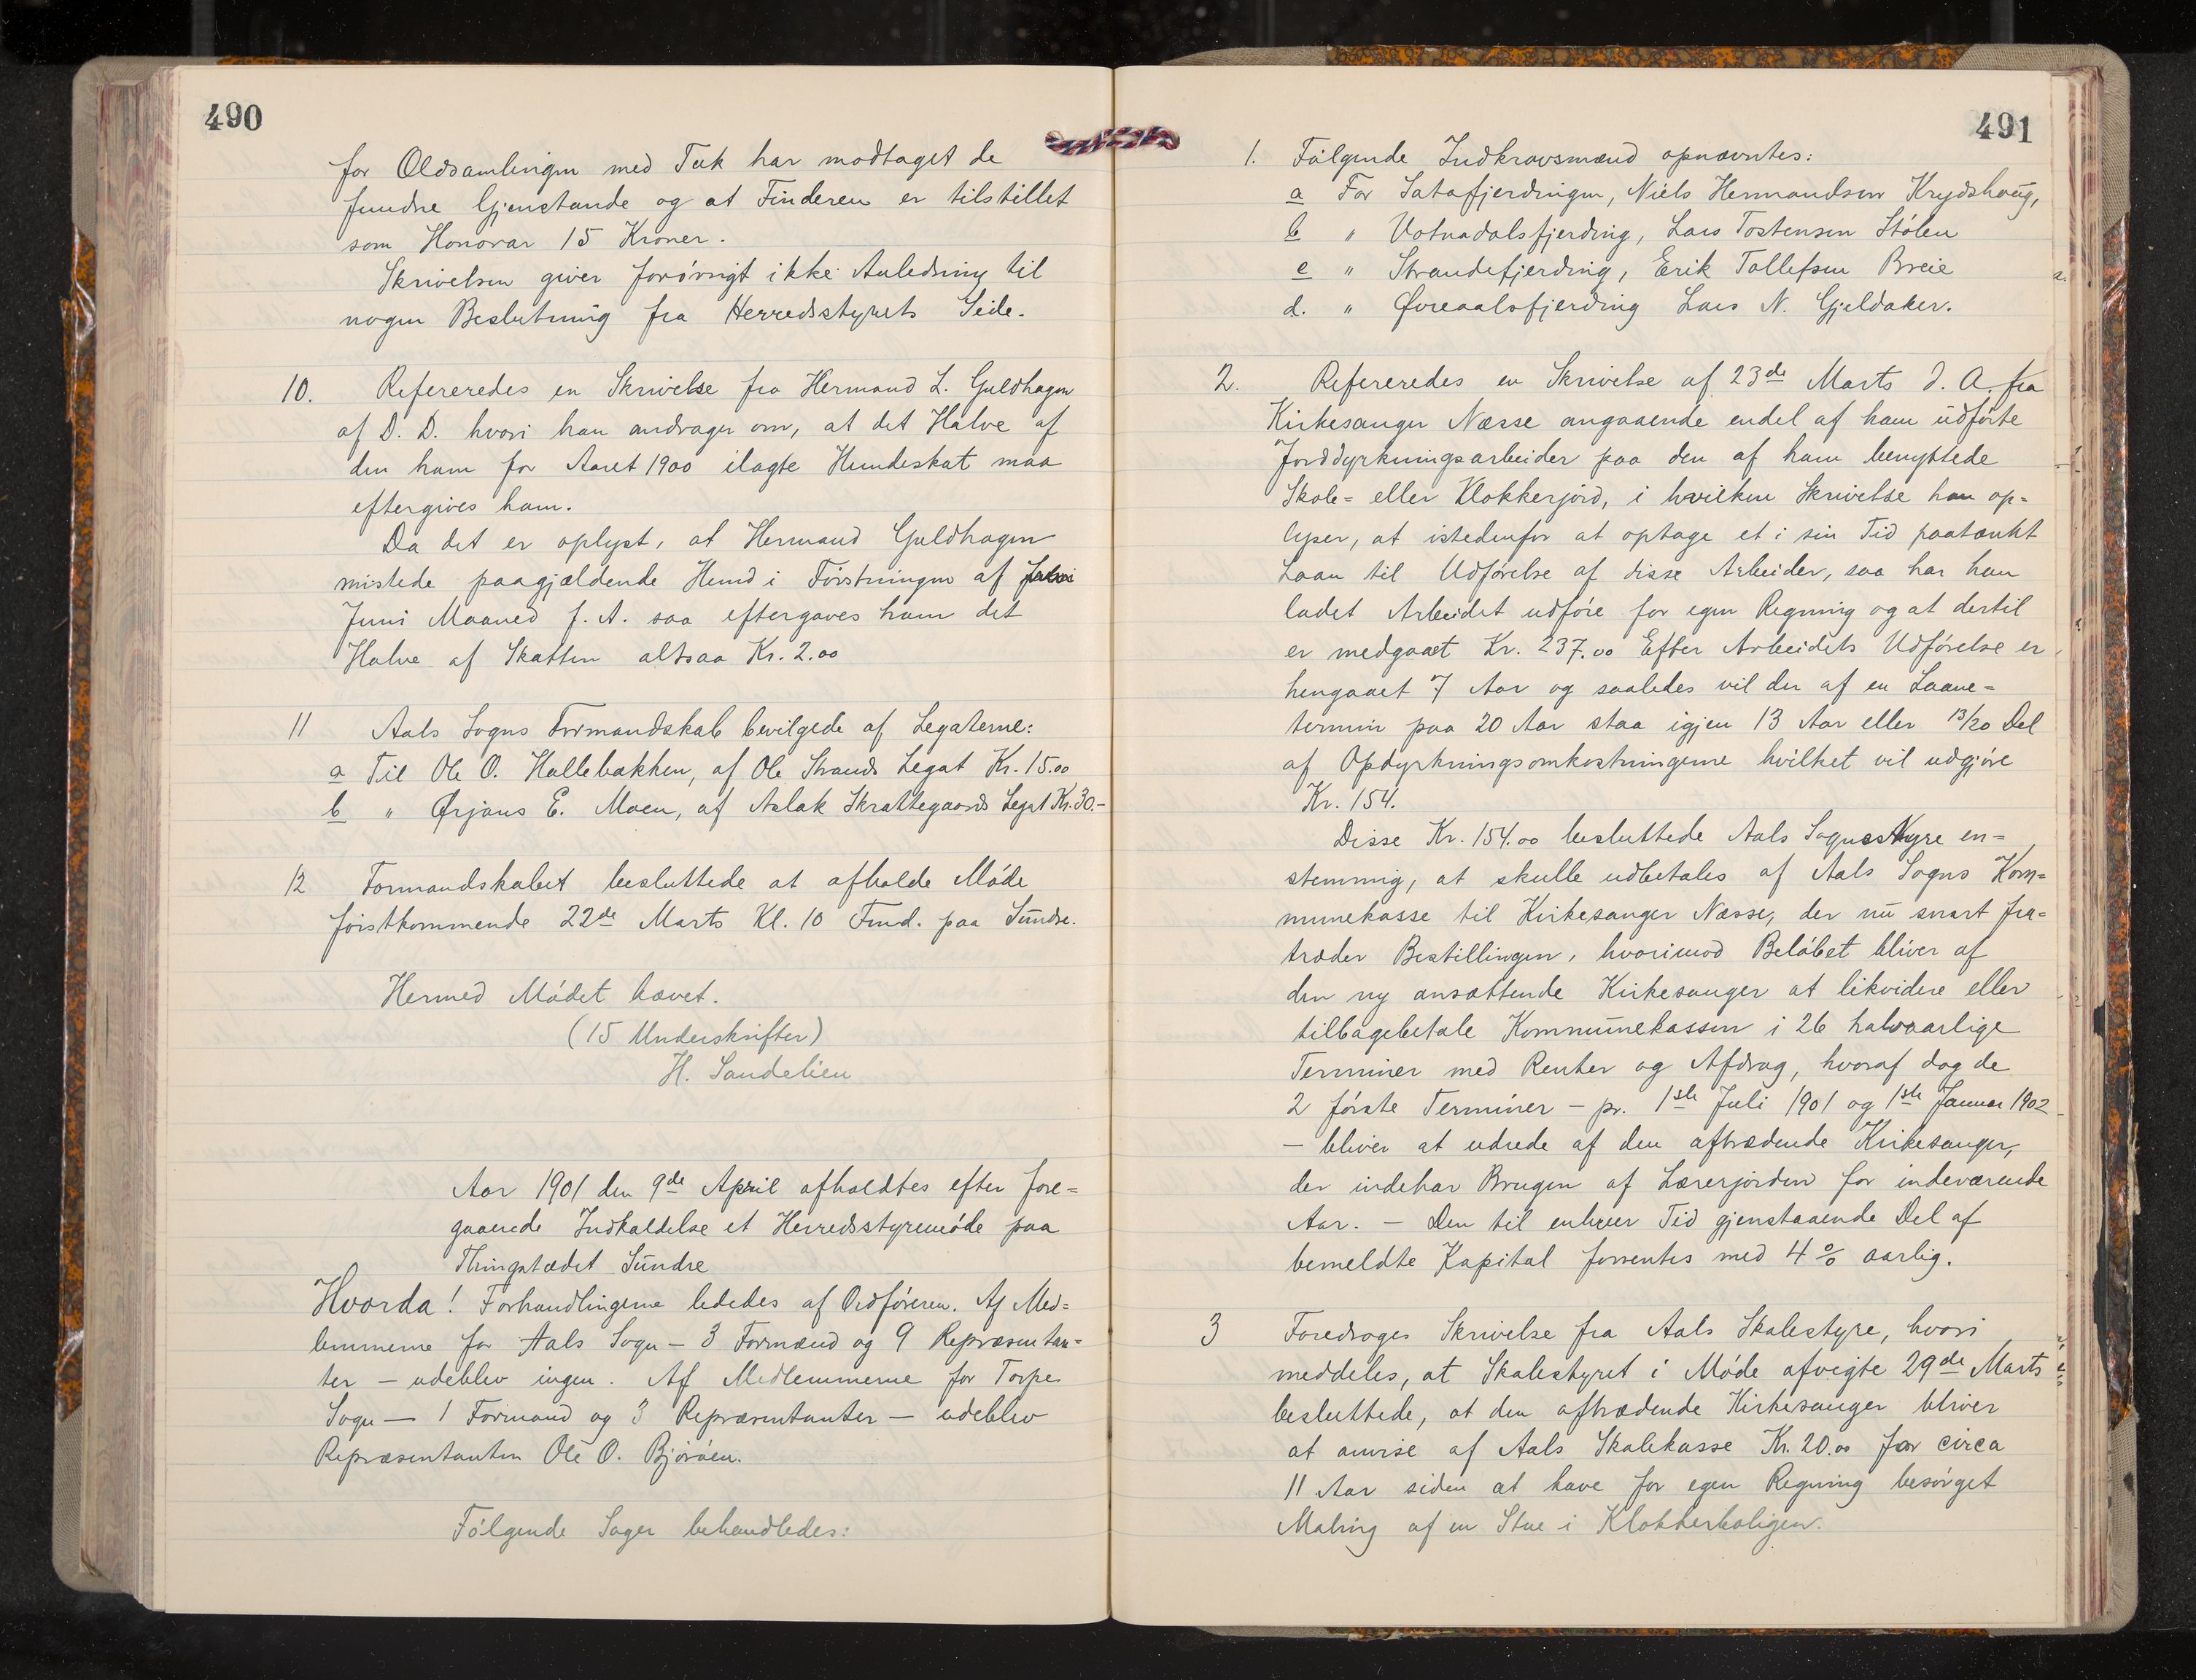 490
for Oldsamlingen med Tak har modtaget de
fundne Gjenstande og at Finderen er tilstillet
som Honorar 15 Kroner.
Skrivelsen giver forøvrigt ikke Anledning til
nogen Beslutning fra Herredsstyrets Side.
10. Refereredes en Skrivelse fra Hermand L. Guldhagen
af D. D. hvori han andrager om, at det Halve af
den ham for Aaret 1900 ilagte Hundeskat maa
eftergives ham.
Da det er oplyst, at Hermand Guldhagen
mistede paagjældende Hund i Førstningen af
Juni Maaned f. A. saa eftergaves ham det
Halve af Skatten altsaa Kr. 2.00
11 Aals Sogns Formandskab bevilgede af Legaterne:
a Til Ole O. Hallebakken, af Ole Strands Legat Kr. 15.00
b " Ørjans E. Moen, af Aslak Skrattegaards Legat Kr. 30.-
12 Formandskabet besluttede at afholde Møde
førstkommende 22de Marts Kl. 10 Fmd. paa Sundre.
Hermed Mødet hævet.
(15 Underskrifter)
H. Sandelien
Aar 1901 den 9de April afholdtes efter fore=
gaaende Indkaldelse et Herredsstyremøde paa
Thingstedet Sundre
Hvorda! Forhandlingerne lededes af Ordføreren. Af Med=
lemmerne for Aals Sogn - 3 Formænd og 9 Repræsentan=
ter - udeblev ingen. Af Medlemmerne for Torpe
Sogn - 1 Formand og 3 Repræsentanter - udeblev
Repræsentanten Ole O. Bjøråen.
Følgende Sager behandledes:
491
1. Følgende Indkrævsmænd opnævntes:
a For Satafjerdingen, Niels Hermandsen Krydshaug,
b " Votnadalsfjerding, Lars Tostensen Stølen
c " Strandefjerding, Erik Tollefsen Breie
d. " Øvreaalsfjerding Lars N. Gjeldaker.
2. Refereredes en Skrivelse af 23de Marts d. A. fra
Kirkesanger Næsse angaaende endel af ham udførte
Jorddyrkningsarbeider paa den af ham benyttede
Skole= eller Klokkerjord, i hvilken Skrivelse han op=
lyser, at istedenfor at optage et i sin Tid paatænkt
Laan til Udførelse af disse Arbeider, saa har han
ladet Arbeidet udføre for egen Regning og at dertil
er medgaaet Kr. 237.00 Efter Arbeidets Udførelse er
hengaaet 7 Aar og saaledes vil der af en Laane=
termin paa 20 Aar staa igjen 13 Aar eller 13/20 Del
af Opdyrkningsomkostningerne hvilket vil udgjøre
Kr. 154.
Disse Kr. 154.00 besluttede Aals Sognestyre en=
stemmig, at skulle udbetales af Aals Sogns Kom=
munekasse til Kirkesanger Næsse, der nu snart fra=
træder Bestillingen, hvorimod Beløbet bliver af
den ny ansættende Kirkesanger at likvidere eller
tilbagebetale Kommunekassen i 26 halvaarlige
Terminer med Renter og Afdrag, hvoraf dog de
2 første Terminer - pr. 1ste Juli 1901 og 1ste Januar 1902
- bliver at udrede af den aftrædende Kirkesanger,
der indehar Brugen af Lærerjorden for indeværende
Aar. - Den til enhver Tid gjenstaaende Del af
bemeldte Kapital forrentes med 4 % aarlig.
3 Foredroges Skrivelse fra Aals Skolestyre, hvori
meddeles, at Skolestyret i Møde afvigte 29de Marts
besluttede, at den aftrædende Kirkesanger bliver
at anvise af Aals Skolekasse Kr. 20.00 for circa
11 Aar siden at have for egen Regning besørget
Maling af en Stue i Klokkerboligen.